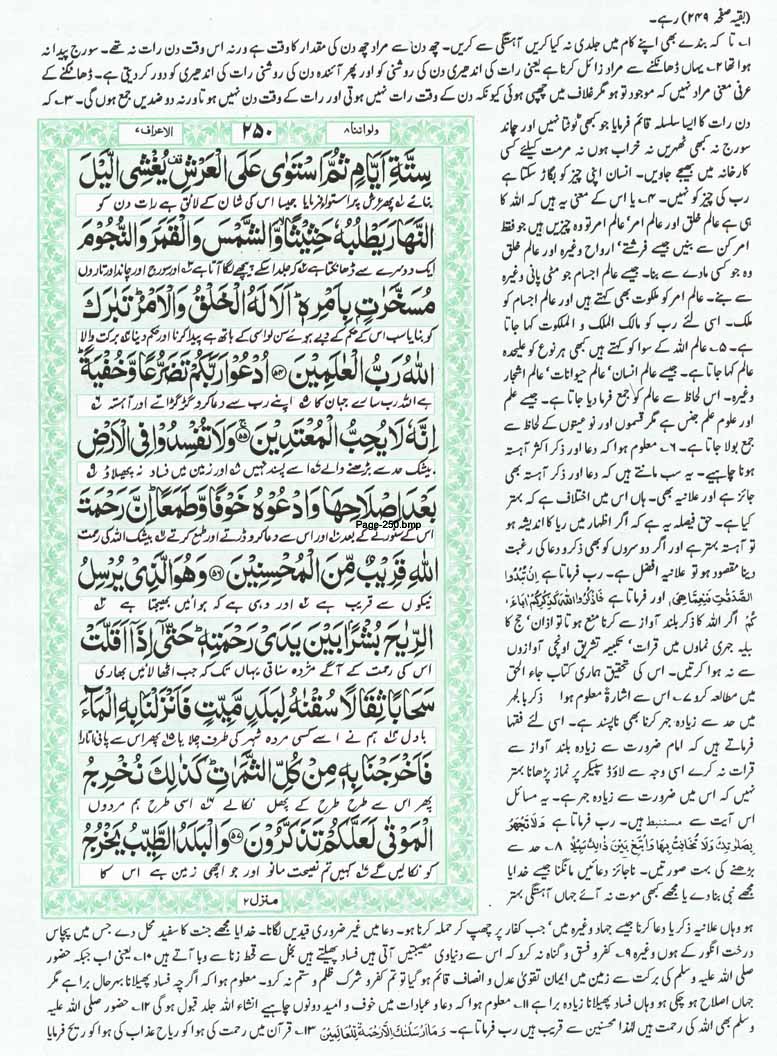 (بقیہ صفحہ ۲۴۹) رہے۔
۱؎ تا کہ بندے بھی اپنے کام میں جلدی نہ کیا کریں آہستگی سے کریں۔ چھ دن سے مراد چھ دن کی مقدار کا وقت ہے ورنہ اس وقت دن رات نہ تھے۔ سورج پیدا نہ
ہوا تھا ۲؎ یہاں ڈھانکنے سے مراد زائل کرنا ہے یعنی رات کی اندھیری دن کی روشنی کو اور پھر آئندہ دن کی روشنی رات کی اندھیری کو دور کر دیتی ہے۔ ڈھانکنے کے
عرفی معنی مراد نہیں کہ موجود تو ہو مگر غلاف میں چھپی ہوئی کیونکہ دن کے وقت رات نہیں ہوتی اور رات کے وقت دن نہیں ہوتا ورنہ دو ضدیں جمع ہوں گی۔ ۳؎ کہ
دن رات کا ایسا سلسلہ قائم فرمایا جو کبھی ٹوٹتا نہیں اور چاند
سورج نہ کبھی ٹھہریں نہ خراب ہوں نہ مرمت کیلئے کسی
کارخانہ میں بھیجے جاویں۔ انسان اپنی چیز کو بگاڑ سکتا ہے
رب کی چیز کو نہیں۔ ۴؎ یا اس کے معنی یہ ہیں کہ اللہ کا
ہی ہے عالم خلق اور عالم امر، عالم امر تو وہ چیزیں ہیں جو فقط
امر کن سے بنیں جیسے فرشتے، ارواح وغیرہ اور عالم خلق
وہ جو کسی مادے سے بنا۔ جیسے عالم اجسام جو مٹی پانی وغیرہ
سے بنے۔ عالم امر کو ملکوت بھی کہتے ہیں اور عالم اجسام کو
ملک۔ اسی لئے رب کو مالک الملک و الملکوت کہا جاتا
ہے۔ ۵؎ عالم اللہ کے سوا کو کہتے ہیں کبھی ہر نوع کو علیحدہ
عالم کہا جاتا ہے۔ جیسے عالم انسان، عالم حیوانات، عالم اشجار
وغیرہ۔ اس لحاظ سے عالم کو جمع فرما دیا جاتا ہے۔ جیسے علم
اور علوم علم جنس ہے مگر قسموں اور نوعیتوں کے لحاظ سے
جمع بولا جاتا ہے۔ ۶؎ معلوم ہوا کہ دعا اور ذکر اکثر آہستہ
ہونا چاہیے۔ یہ سب مانتے ہیں کہ دعا اور ذکر آہستہ بھی
جائز ہے اور علانیہ بھی۔ ہاں اس میں اختلاف ہے کہ بہتر
کیا ہے۔ حق فیصلہ یہ ہے کہ اگر اظہار میں ریا کا اندیشہ ہو
تو آہستہ بہتر ہے اور اگر دوسروں کو بھی ذکر و دعا کی رغبت
دینا مقصود ہو تو علانیہ افضل ہے۔ رب فرماتا ہے اِنْ تُبْدُوا
الصَّدَقٰتِ فَنِعِمَّا هِیَ اور فرماتا ہے فَاذْكُرُوا اللّٰهَ كَذِكْرِكُمْ اٰبَآءَ
كُمْ اگر اللہ کا ذکر بلند آواز سے کرنا منع ہوتا تو اذان، حج کا
تلبیہ جہری نمازوں میں قرات، تکبیر تشریق اونچی آوازوں
سے نہ ہوا کرتیں۔ اس کی تحقیق ہماری کتاب جاء الحق
میں مطالعہ کرو ۷؎ اس سے اشارۃً معلوم ہوا ذکر بالجہر
میں حد سے زیادہ جہر کرنا بھی ناپسند ہے۔ اسی لئے فقہا
فرماتے ہیں کہ امام ضرورت سے زیادہ بلند آواز سے
قرات نہ کرے اسی وجہ سے لاؤڈ سپیکر پر نماز پڑھانا بہتر
نہیں کہ اس میں ضرورت سے زیادہ جہر ہے۔ یہ مسائل
اس آیت سے مستنبط ہیں۔ رب فرماتا ہے وَلَا تَجْهَرْ
بِصَلَاتِكَ وَلَا تُخَافِتْ بِهَا وَابْتَغِ بَيْنَ ذٰلِكَ سَبِيْلًا ۸؎ حد سے
بڑھنے کی بہت صورتیں۔ ناجائز دعائیں مانگنا جیسے خدایا
مجھے نبی بنا دے یا مجھے کبھی موت نہ آئے جہاں آہستگی بہتر
ولو اننا ۸
۲۵۰
الاعراف ۷
سِتَّةِ اَيَّامٍ ثُمَّ اسْتَوٰى عَلَى الْعَرْشِ يُغْشِى الَّيْلَ
بنائے پھر عرش پر استواء فرمایا جیسا اس کی شان کے لائق ہے رات دن کو
النَّهَارَ يَطْلُبُهٗ حَثِيْثًا وَّالشَّمْسَ وَالْقَمَرَ وَالنُّجُوْمَ
ایک دوسرے سے ڈھانکتا ہے کہ جلد اسکے پیچھے لگا آتا ہے اور سورج اور چاند اور تاروں
مُسَخَّرٰتٍۭ بِاَمْرِهٖ اَلَا لَهُ الْخَلْقُ وَالْاَمْرُ تَبٰرَكَ
کو بنایا سب اس کے حکم کے دبے ہوئے سن لو اسی کے ہاتھ ہے پیدا کرنا اور حکم دینا بڑی برکت والا
اللّٰهُ رَبُّ الْعٰلَمِيْنَ ۵۴ اُدْعُوْا رَبَّكُمْ تَضَرُّعًا وَّخُفْيَةً
ہے اللہ رب سارے جہان کا اپنے رب سے دعا کرو گڑگڑاتے اور آہستہ
اِنَّهٗ لَا يُحِبُّ الْمُعْتَدِيْنَ ۵۵ وَلَا تُفْسِدُوْا فِى الْاَرْضِ
بیشک حد سے بڑھنے والے اسے پسند نہیں اور زمین میں فساد نہ پھیلاؤ
بَعْدَ اِصْلَاحِهَا وَادْعُوْهُ خَوْفًا وَّطَمَعًا اِنَّ رَحْمَتَ
Page-250.bmp
اس کے سنورنے کے بعد اور اس سے دعا کرو ڈرتے اور طمع کرتے بیشک اللہ کی رحمت
اللّٰهِ قَرِيْبٌ مِّنَ الْمُحْسِنِيْنَ ۵۶ وَهُوَ الَّذِىْ يُرْسِلُ
نیکوں سے قریب ہے اور وہی ہے کہ ہوائیں بھیجتا ہے
الرِّيٰحَ بُشْرًۢا بَيْنَ يَدَىْ رَحْمَتِهٖ حَتّٰى اِذَا اَقَلَّتْ
اس کی رحمت کے آگے مژدہ سناتی یہاں تک کہ جب اٹھا لائیں بھاری
سَحَابًا ثِقَالًا سُقْنٰهُ لِبَلَدٍ مَّيِّتٍ فَاَنْزَلْنَا بِهِ الْمَآءَ
بادل ہم نے اسے کسی مردہ شہر کی طرف چلایا پھر اس سے پانی اتارا
فَاَخْرَجْنَا بِهٖ مِنْ كُلِّ الثَّمَرٰتِ كَذٰلِكَ نُخْرِجُ
پھر اس سے طرح طرح کے پھل نکالے اسی طرح ہم مردوں
الْمَوْتٰى لَعَلَّكُمْ تَذَكَّرُوْنَ ۵۷ وَالْبَلَدُ الطَّيِّبُ يَخْرُجُ
کو نکالیں گے کہیں تم نصیحت مانو اور جو اچھی زمین ہے اس کا
منزل ۲
ہو وہاں علانیہ ذکر یا دعا کرنا جیسے جہاد وغیرہ میں، جب کفار پر چھپ کر حملہ کرنا ہو۔ دعا میں غیر ضروری قیدیں لگانا۔ خدایا مجھے جنت کا سفید محل دے جس میں پچاس
درخت انگور کے ہوں وغیرہ ۹؎ کفر و فسق و گناہ نہ کرو کہ اس سے دنیاوی مصیبتیں آتی ہیں فساد پھیلتے ہیں بخل سے قحط زنا سے وبا آتے ہیں ۱۰؎ یعنی اب جبکہ حضور
صلی اللہ علیہ وسلم کی برکت سے زمین میں ایمان تقویٰ عدل و انصاف قائم ہو گیا تو تم کفر و شرک ظلم و ستم نہ کرو۔ معلوم ہوا کہ اگرچہ فساد پھیلانا بہرحال برا ہے مگر
جہاں اصلاح ہو چکی ہو وہاں فساد پھیلانا زیادہ برا ہے ۱۱؎ معلوم ہوا کہ دعا و عبادات میں خوف و امید دونوں چاہیے انشاء اللہ جلد قبول ہو گی ۱۲؎ حضور صلی اللہ علیہ
وسلم بھی اللہ کی رحمت ہیں لہٰذا محسنین سے قریب ہیں رب فرماتا ہے۔ وَمَا اَرْسَلْنٰكَ اِلَّا رَحْمَةً لِّلْعٰلَمِيْنَ ۱۳؎ قرآن میں رحمت کی ہوا کو ریاح عذاب کی ہوا کو ریح فرمایا